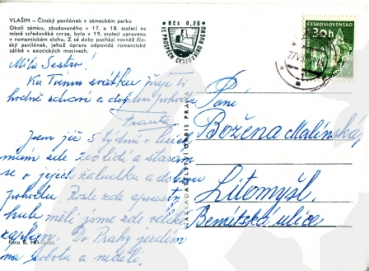 VLAŠIM – Čínský pavilónek v zámeckém parku
Okolí zámku, zbudovaného v 17. a 18. století na
místě středověké tvrze, bylo v 19. století upraveno
v romantickém slohu. Z té doby pochází rovněž čín-
ský pavilónek, jehož úprava odpovídá romantické
zálibě v exotických motivech.
Kčs 0,20
ČESKOSLOVENSKO
30h
Milá Sestro!
Ku Tvému svátku přeje Ti
hodně zdraví a dobrou pohodu
Franta
Jsem již 5 týdnů v
mám zde 200 lidí a starám
se o jejich žaludky a dobrou
pohodu.
hub měli jsme zde veliké
Do Prahy jezdím
na sobotu a neděli.
Paní
Božena Malínská,
Litomyšl
Bernitská ulice